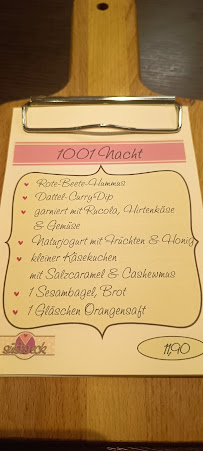 1001 Nacht
Rote-Beete-Hummus
Dattel-Curry-Dip
garniert mit Rucola, Hirtenkäse
& Gemüse
Naturjogurt mit Früchten & Honig
kleiner Käsekuchen
mit Salzcaramel & Cashewmus
1 Sesambagel, Brot
1 Gläschen Orangensaft
11,90